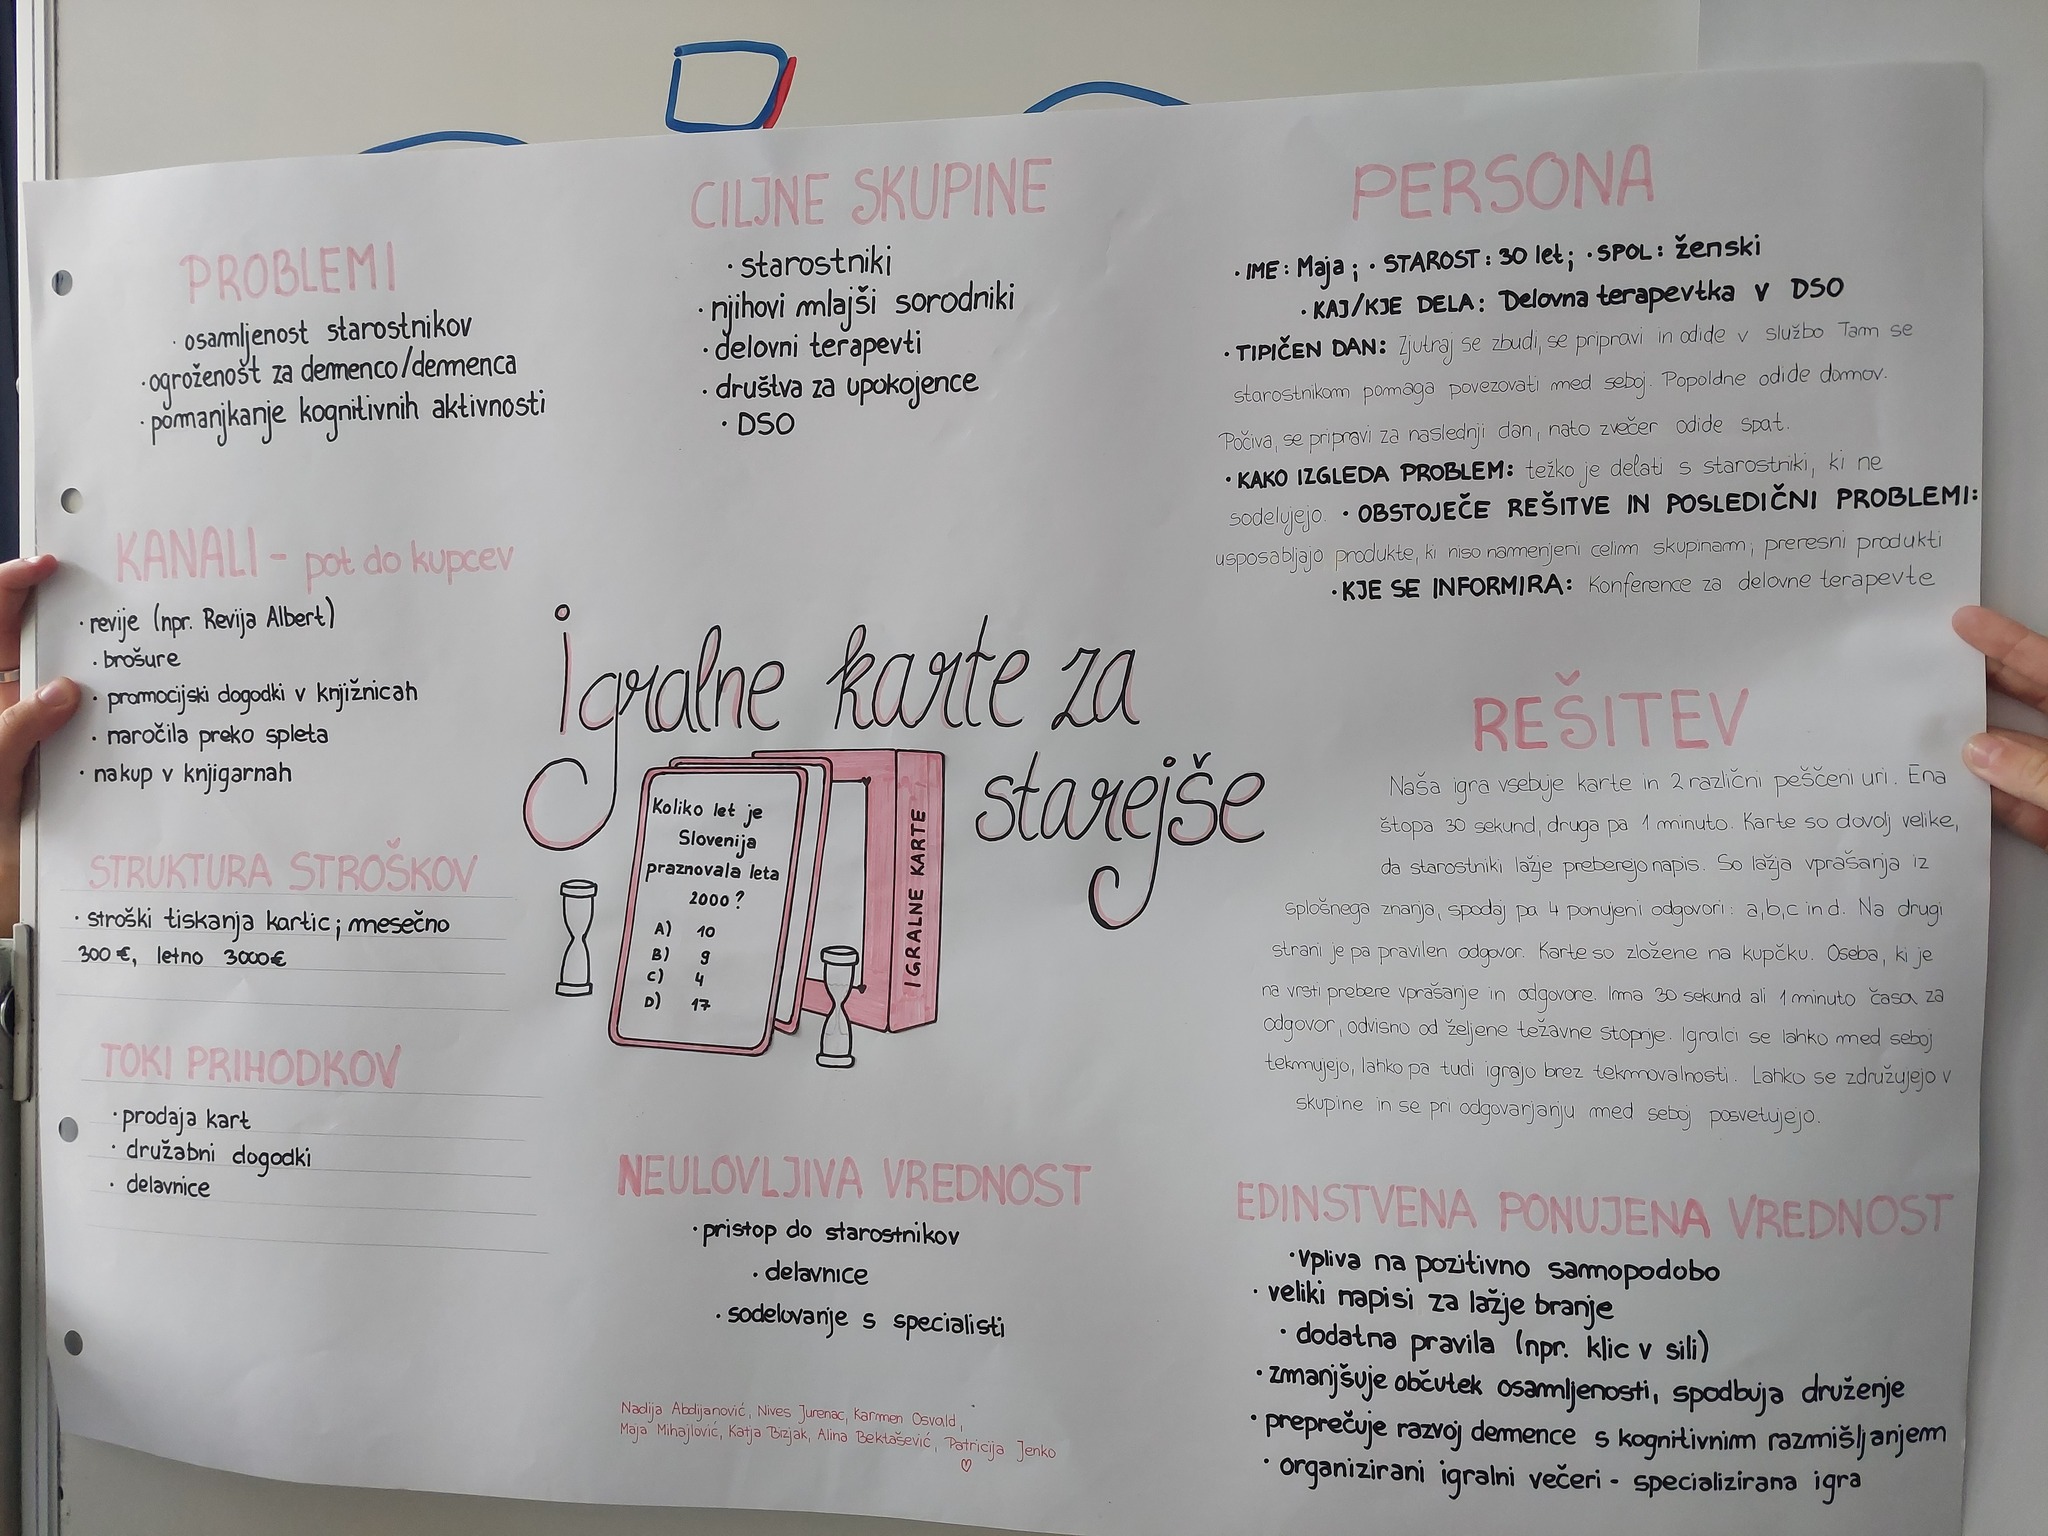 PROBLEMI
· osamljenost starostnikov
· ogroženost za demenco/demenca
· pomanjkanje kognitivnih aktivnosti
CILJNE SKUPINE
· starostniki
· njihovi mlajši sorodniki
· delovni terapevti
· društva za upokojence
· DSO
PERSONA
· IME: Maja; · STAROST: 30 let; · SPOL: ženski
· KAJ/KJE DELA: Delovna terapevtka v DSO
· TIPIČEN DAN: Zjutraj se zbudi, se pripravi in odide v službo Tam se
starostnikom pomaga povezovati med seboj. Popoldne odide domov.
Počiva, se pripravi za naslednji dan, nato zvečer odide spat.
· KAKO IZGLEDA PROBLEM: težko je delati s starostniki, ki ne
sodelujejo. · OBSTOJEČE REŠITVE IN POSLEDIČNI PROBLEMI:
usposabljajo produkte, ki niso namenjeni celim skupinam; preresni produkti
· KJE SE INFORMIRA: Konference za delovne terapevte
KANALI - pot do kupcev
· revije (npr. Revija Albert)
· brošure
· promocijski dogodki v knjižnicah
· naročila preko spleta
· nakup v knjigarnah
Igralne karte za
starejše
Koliko let je
Slovenija
praznovala leta
2000?
A) 10
B) 9
C) 4
D) 17
IGRALNE KARTE
REŠITEV
Naša igra vsebuje karte in 2 različni peščeni uri. Ena
štopa 30 sekund, druga pa 1 minuto. Karte so dovolj velike,
da starostniki lažje preberejo napis. So lažja vprašanja iz
splošnega znanja, spodaj pa 4 ponujeni odgovori: a,b,c in d. Na drugi
strani je pa pravilen odgovor. Karte so zložene na kupčku. Oseba, ki je
na vrsti prebere vprašanje in odgovore. Ima 30 sekund ali 1 minuto časa za
odgovor, odvisno od željene težavne stopnje. Igralci se lahko med seboj
tekmujejo, lahko pa tudi igrajo brez tekmovalnosti. Lahko se združujejo v
skupine in se pri odgovarjanju med seboj posvetujejo.
STRUKTURA STROŠKOV
· stroški tiskanja kartic; mesečno
300 €, letno 3000€
TOKI PRIHODKOV
· prodaja kart
· družabni dogodki
· delavnice
NEULOVLJIVA VREDNOST
· pristop do starostnikov
· delavnice
· sodelovanje s specialisti
EDINSTVENA PONUJENA VREDNOST
· vpliva na pozitivno samopodobo
· veliki napisi za lažje branje
· dodatna pravila (npr. klic v sili)
· zmanjšuje občutek osamljenosti, spodbuja druženje
· preprečuje razvoj demence s kognitivnim razmišljanjem
· organizirani igralni večeri - specializirana igra
Nadija Abdijanović, Nives Jurenac, Karmen Osvald,
Maja Mihajlović, Katja Bizjak, Alina Bektašević, Patricija Jenko